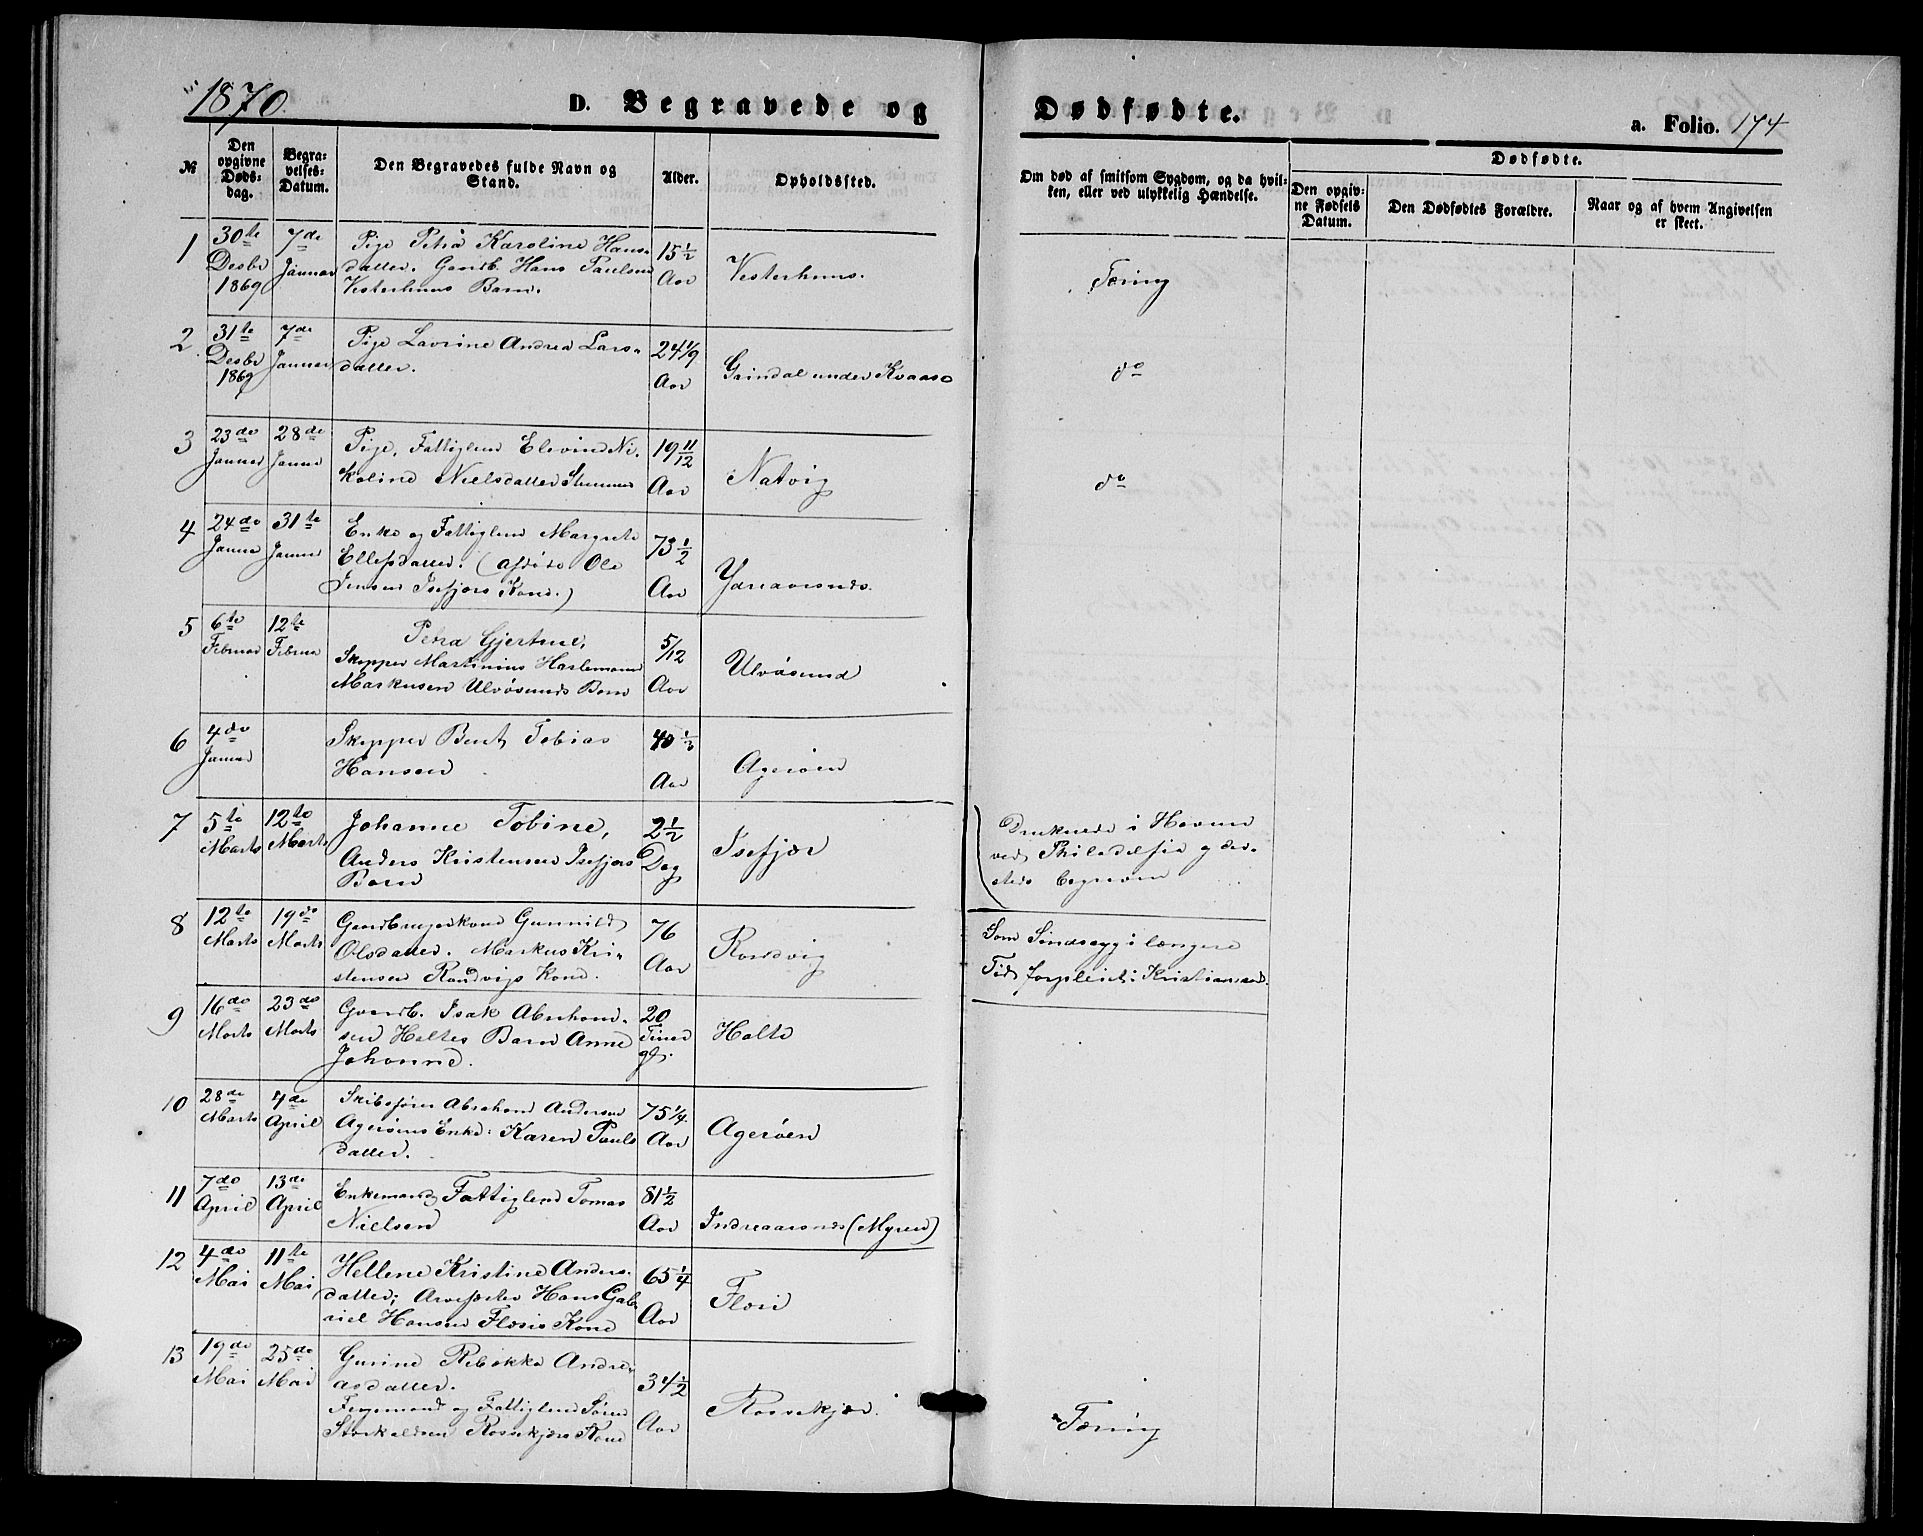 1870.
D. Begravede og Dødfødte.
a. Folio. 174
№
Den opgivne Døds-dag.
Begra-velses-Datum.
Den Begravedes fulde Navn og Stand.
Alder.
Opholdssted.
Om død af smitsom Sygdom, og da hvil-
ken, eller ved ulykkelig Hændelse.
Dødfødte.
Den opgiv-ne Fødsels Datum.
Den Dødfødtes Forældre.
Naar og af hvem Angivelsen er skeet.
1 30te Desbr 1869 7de Januar
Pige Petra Karoline Hans-
datter. Gaardb. Hans Paulsen
Vesterhuus Barn.
15 1/2 Aar
Vesterhuus.
Tæring
2 31te Desbr 1869 7de Januar
Pige Lavrine Andrea Lars-
datter.
24 1/9 Aar
Grindal under Kvaase
do
3 23de Januar 28de Januar
Pige, Fattiglem Elevine Ni-
koline Nielsdatter
19 11/12 Aar
Natvig
do
4 24de Januar 31te Januar
Enke og Fattiglem Margrete
Ellefsdatter. (afdøde Ole
Jensen Isefjærs Kone.)
73 1/2 Aar
Ydreaarsnæs.
5 6te Februar 12te Februar
Petra Gjertine,
Skipper Martinius Harlemann
Markusen Ulvøsunds Barn
5/12 Aar
Ulvøsund
6 4de Januar
Skipper Bent Tobias
Hansen
40 1/2 Aar
Agerøen
Druknede i Havnen
ved Philadelfia og der-
steds begraven
7 5te Marts 12te Marts
Johanne Tobine,
Anders Kristensen Isefjærs
Barn
2 1/2 Dag
Isefjær
8 12te Marts 19de Marts
Gaardbrugerkone Gunnild
Olsdatter. Markus Kri-
stensen Randvigs Kone.
76 Aar
Randvig
Som Sindssyg i længere
Tid forpleiet i Kristianssand.
9 16de Marts 23de Marts
Gaardb. Isak Abraham-
sen Holtes Barn Anne
Johanne.
20 Timer gl.
Holte
10 28de Marts 4de April
Skibsfører Abraham Andersen
Agerøens Enke: Karen Pauls
datter.
75 1/4 Aar
Agerøen
11 7de April 13de April
Enkemand, Fattiglem Tomas
Nielsen
81 1/2 Aar
Indreaarsnæs (Myren)
12 4de Mai 11te Mai
Hellene Kristine Anders-
datter; Arbeider Hans Gab-
riel Hansen Flæsis Kone
65 1/4 Aar
13 19de Mai 25de Mai
Gurine Rebekka Andre-
asdatter.
Fergemand og Fattiglem Sören
Storkaldsen Rossekjærs Kone
34 1/2 Aar
Rossekjær.
Tæring